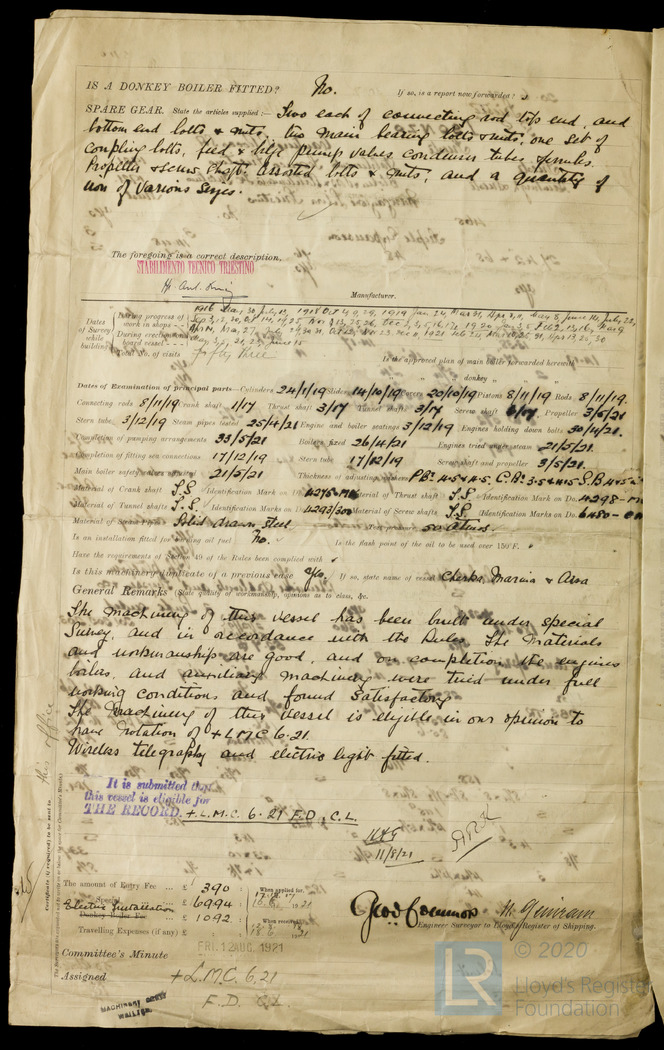 IS A DONKEY BOILER FITTED? No. If so, is a report now forwarded?
SPARE GEAR. State the articles supplied:— Two each of connecting rod top end, and
bottom end bolts & nuts, two main bearing bolts & nuts, one set of
coupling bolts, feed & bilge pump valves condenser tubes ferrules.
Propeller & screw shaft. assorted bolts & nuts, and a quantity of
iron of various sizes.
The foregoing is a correct description,
STABILIMENTO TECNICO TRIESTINO
Manufacturer.
Dates of Survey while building
During progress of work in shops - -
During erection on board vessel - - -
Total No. of visits Fifty three
Is the approved plan of main boiler forwarded herewith
" " " donkey " " "
Dates of Examination of principal parts—Cylinders 24/1/19 Slides 14/10/19 Covers 20/10/19 Pistons 8/11/19 Rods 8/11/19.
Connecting rods 8/11/19 Crank shaft 1/17 Thrust shaft 3/17 Tunnel shafts 3/17 Screw shaft 6/17 Propeller 3/5/21
Stern tube 3/12/19 Steam pipes tested 25/4/21 Engine and boiler seatings 3/12/19 Engines holding down bolts 30/4/21.
Completion of pumping arrangements 23/5/21 Boilers fixed 26/4/21 Engines tried under steam 21/5/21.
Completion of fitting sea connections 17/12/19 Stern tube 17/12/19 Screw shaft and propeller 3/5/21.
Main boiler safety valves adjusted 21/5/21 Thickness of adjusting washers
Material of Crank shaft I.S Identification Mark on Do. Material of Thrust shaft I.S Identification Mark on Do. 4298
Material of Tunnel shafts I.S. Identification Marks on Do. 4293/300 Material of Screw shafts I.S. Identification Marks on Do. 6480
Material of Steam Pipes Solid drawn steel Test pressure 50 Atmos.
Is an installation fitted for burning oil fuel No. Is the flash point of the oil to be used over 150°F.
Have the requirements of Section 49 of the Rules been complied with
Is this machinery duplicate of a previous case Yes. If so, state name of vessel Cherka, Marina &
General Remarks (State quality of workmanship, opinions as to class, &c.
The machinery of this vessel has been built under special
Survey, and in accordance with the Rules. The materials
and workmanship are good, and on completion the engines
boilers, and auxiliary machinery were tried under full
working conditions and found satisfactory.
The Machinery of this vessel is eligible in our opinion to
have notation of + LMC 6.21.
Wireless telegraphy and electric light fitted.
It is submitted that
this vessel is eligible for
THE RECORD. + L.M.C. 6.21 F.D., C.L.
11/8/21
The amount of Entry Fee ... £ 390 : When applied for,
Special ... £ 6994
Electric Installation
Donkey Boiler Fee ... £ 1092. When received,
Travelling Expenses (if any) £
Engineer Surveyor to Lloyd's Register of Shipping.
Committee's Minute FRI. 12 AUG. 1921
Assigned + L.M.C. 6.21
F.D. C.L.
MACHINERY CERT.
WRITTEN.
Certificate (if required) to be sent to this office
LR
© 2020
Lloyd's Register
Foundation